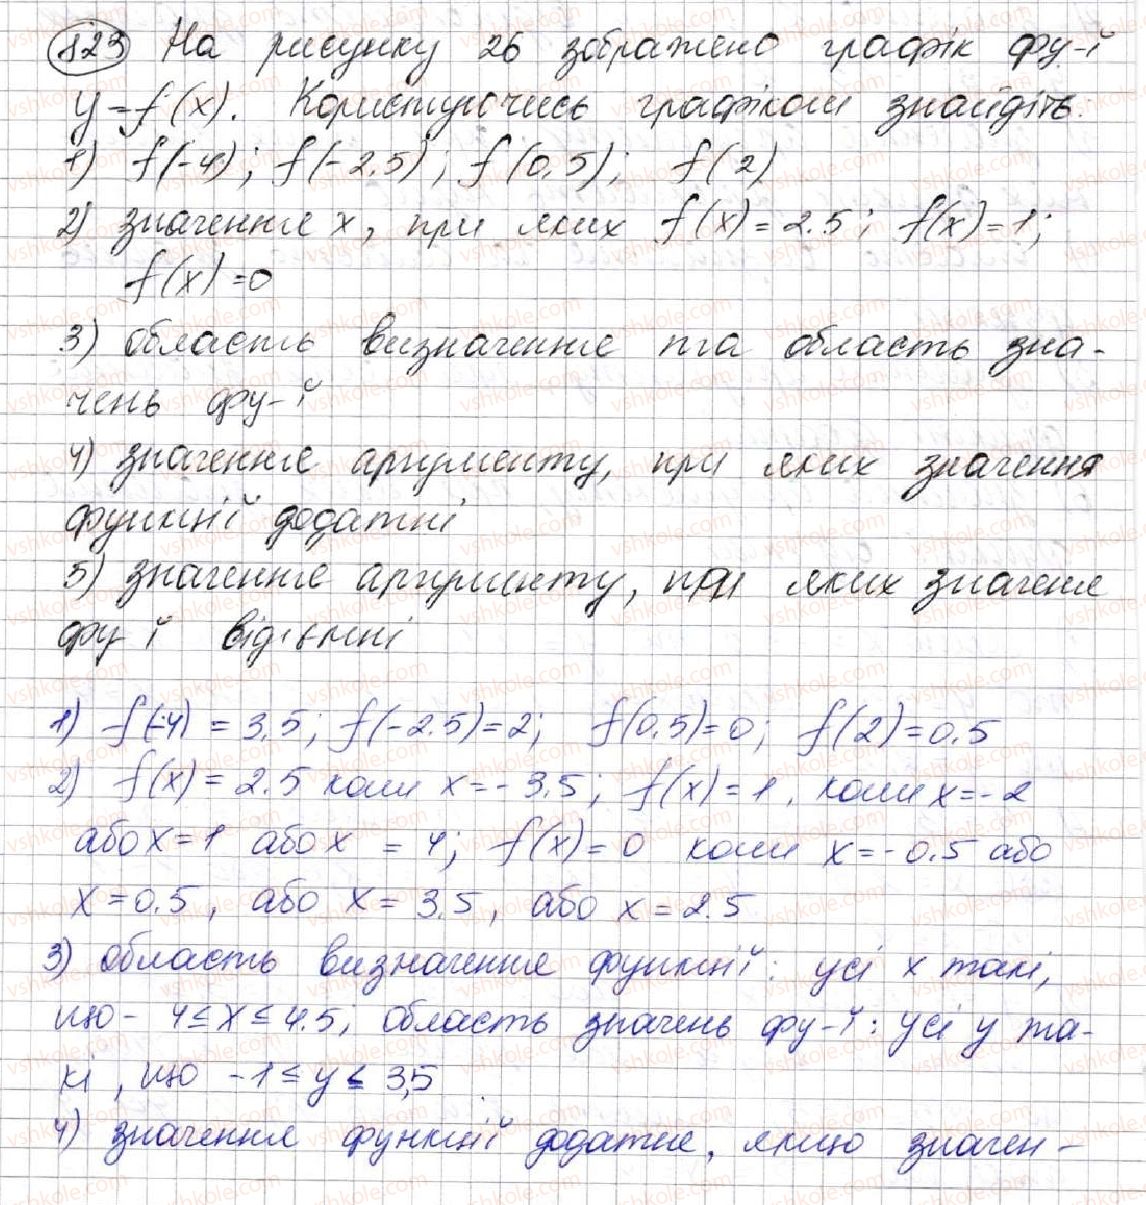 823 На рисунку 26 зображено графік фу-ї
y=f(x). Користуючись графіком знайдіть:
1) f(-4); f(-2,5); f(0,5); f(2)
2) значення x, при яких f(x)=2.5; f(x)=1;
f(x)=0
3) область визначення та область зна-
чень фу-ї
4) значення аргументу, при яких значення
функції додатні
5) значення аргументу, при яких значення
фу-ї від'ємні
1) f(-4) = 3,5; f(-2.5)=2; f(0,5)=0; f(2)=0.5
2) f(x)=2.5 коли x=-3,5; f(x)=1, коли x=-2
або x=1 або x = 4; f(x)=0 коли x=-0.5 або
x=0.5, або x=3,5, або x=2.5
3) область визначення функції: усі x такі,
що -4≤x≤4.5; область значень фу-ї: усі y та-
кі, що -1≤y≤3,5
4) значення функції додатне, якщо значен-